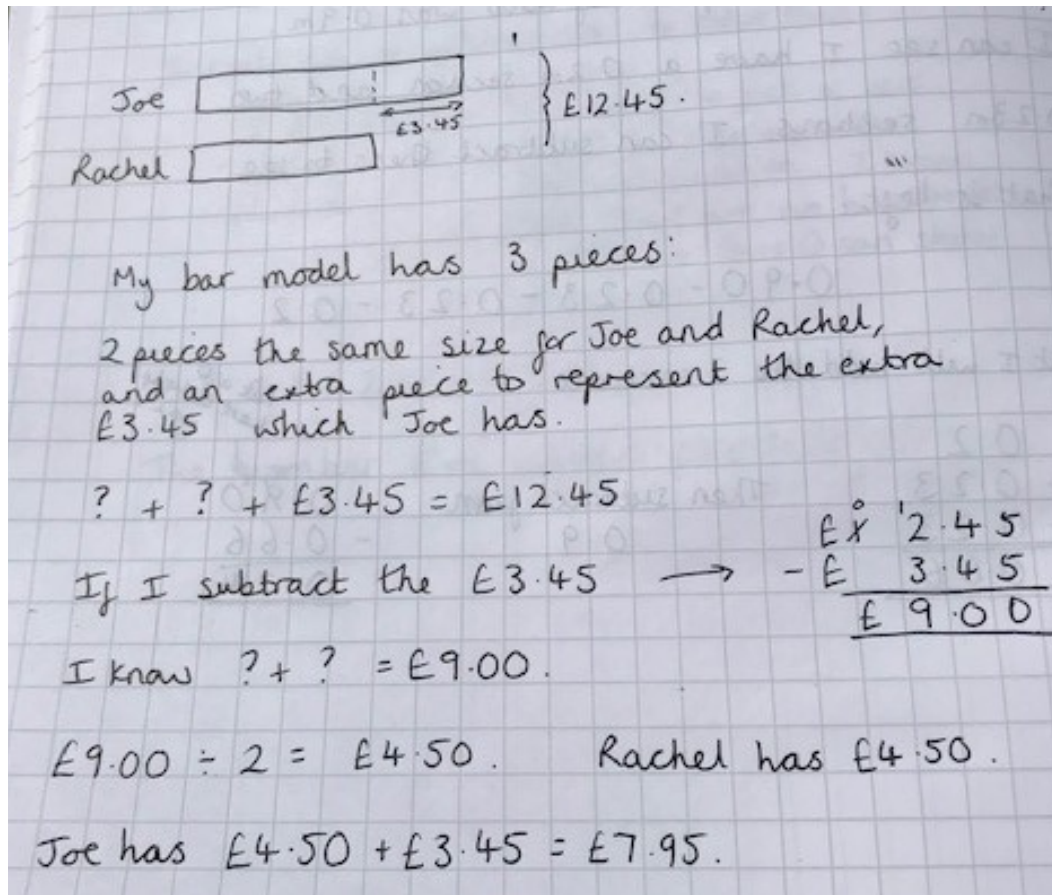 Joe
£3.45
} £12.45.
Rachel
My bar model has 3 pieces:
2 pieces the same size for Joe and Rachel,
and an extra piece to represent the extra
£3.45 which Joe has.
? + ? + £3.45 = £12.45
If I subtract the £3.45 →
0
£1 ¹2.45
- £ 3.45
£ 9.00
I know ? + ? = £9.00.
£9.00 ÷ 2 = £4.50. Rachel has £4.50.
Joe has £4.50 + £3.45 = £7.95.